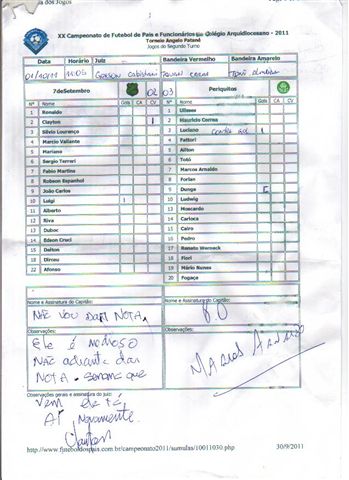 XX Campeonato de Futebol de Pais e Funcionários do Colégio Arquidiocesano - 2011
Torneio Angelo Patané
Jogos do Segundo Turno
Data Horário Juiz Bandeira Vermelho Bandeira Amarelo
01/10/11 11:05
7deSetembro 02 03 Periquitos
Nº Nome Gols CA CV Nº Nome Gols CA CV
1 Ronaldo 1 Ulisses
2 Clayton 1 2 Mauricio Correa
3 Silvio Lourenço 3 Luciano contra gol 1
4 Marcio Valiante 4 Fattori
5 Mariano 5 Ailton
6 Sergio Terreri 6 Totó
7 Fabio Martins 7 Marcos Arnaldo
8 Robson Espanhol 8 Forlan
9 João Carlos 9 Dunga
10 Luigi 1 10 Ludwig
11 Alberto 11 Moscardo
12 Riva 12 Carioca
13 Duboc 13 Cairo
14 Edson Cruci 14 Pedro
15 Delton 17 Renato Werneck
18 Dirceu 18 Fiori
22 Afonso 19 Mário Nunes
20 Fogaça
Nome e Assinatura do Capitão: Nome e Assinatura do Capitão:
NÃO VOU DAR NOTA,
Observações: Observações:
Ele é nervoso
NÃO adianta dar
NOTA. semana que
Observações gerais e assinatura do juiz:
Vem ele tá
Aí novamente.
Clayton
http://www.futeboldospais.com.br/campeonato2011/sumulas/10011030.php 30/9/2011